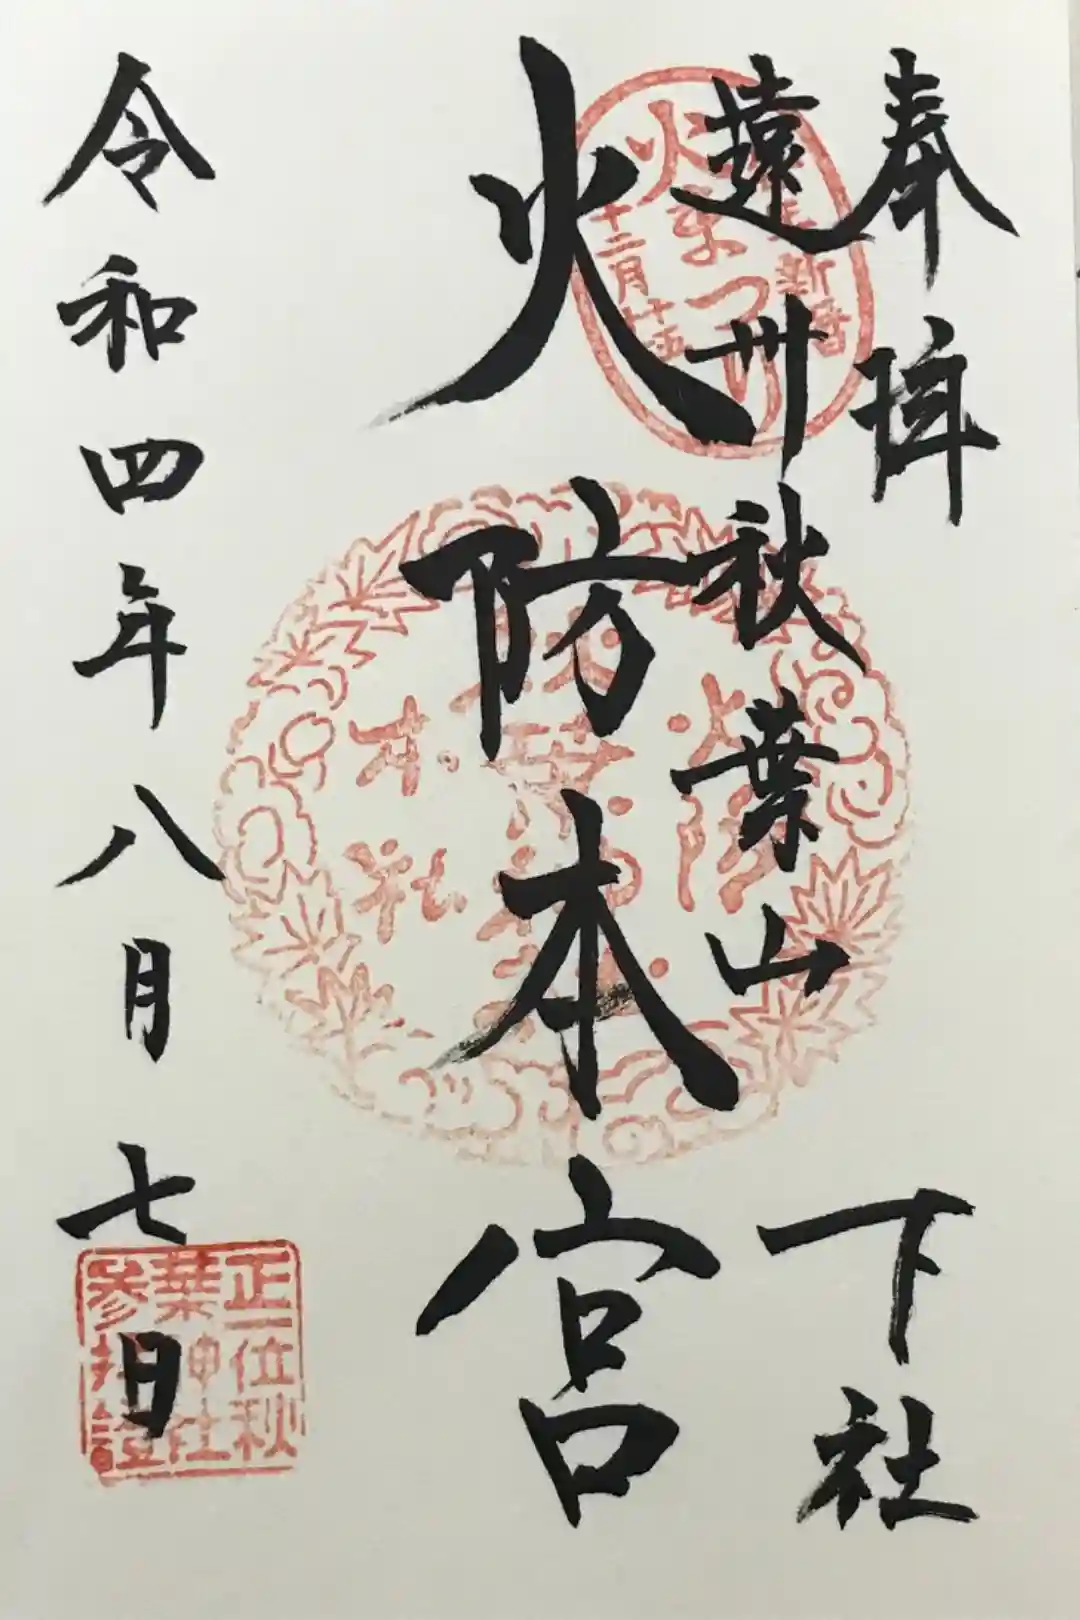 奉拝
遠州秋葉山
下社
火防本宮
令和四年八月七日
火まつり
新暦
十二月十五
本社
正一位秋
葉神社
参拝證